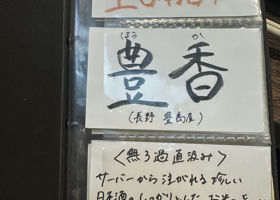 ほう か
豊香
(長野 豊島屋)
〈無ろ過直汲み〉
サーバーから注がれる珍しい
日本酒の